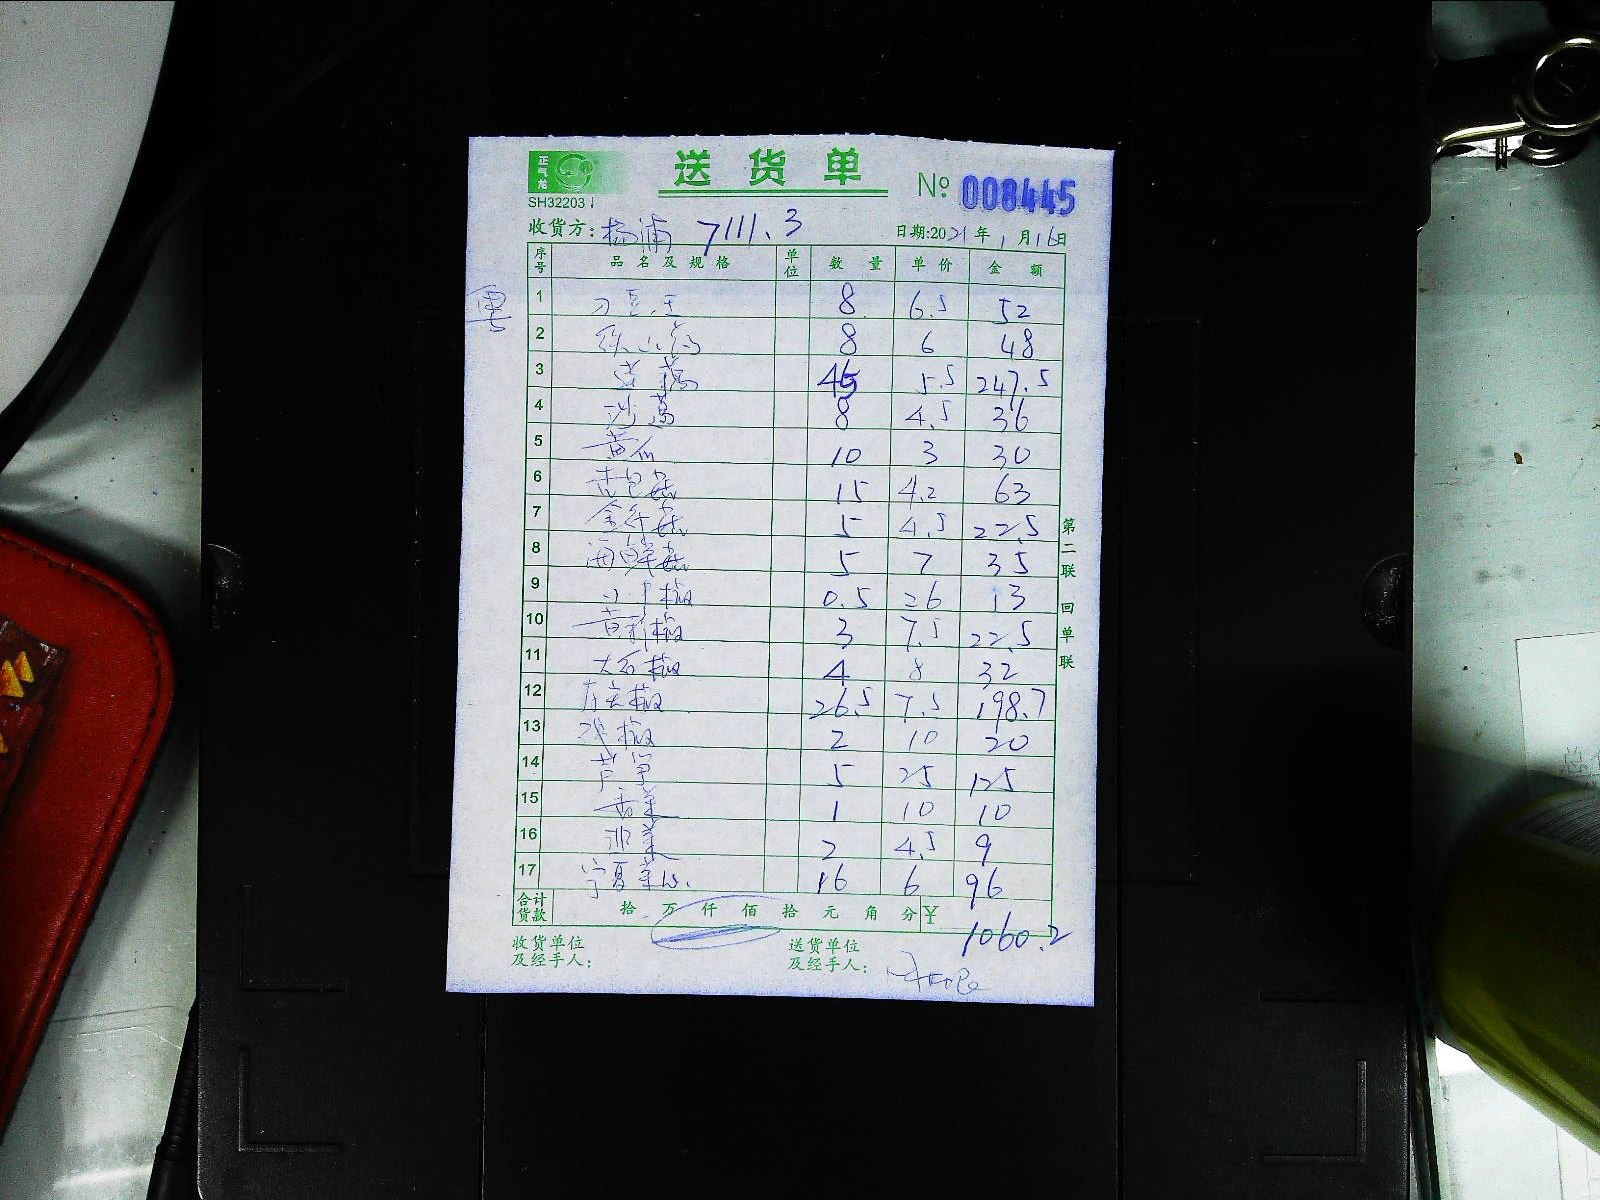 正气龙
送货单
SH32203
№ 008445
收货方: 杨浦 7111.3 日期:2021年1月16日
序号 品名及规格 单位 数量 单价 金额
1 刀豆王 8 6.5 52
2 铁山药 8 6 48
3 45 5.5 247.5
4 沙葛 8 4.5 36
5 黄瓜 10 3 30
6 杏包菇 15 4.2 63
7 金针菇 5 4.5 22.5
8 海鲜菇 5 7 35
9 小米椒 0.5 26 13
10 黄彩椒 3 7.5 22.5
11 大石椒 4 8 32
12 椒 26.5 7.5 198.7
13 线椒 2 10 20
14 芦笋 5 25 125
15 香菜 1 10 10
16 韭菜 2 4.5 9
17 宁夏菜心 16 6 96
合计货款 拾 万 仟 佰 拾 元 角 分 ¥ 1060.2
收货单位及经手人:
送货单位及经手人:
第二联 回单联